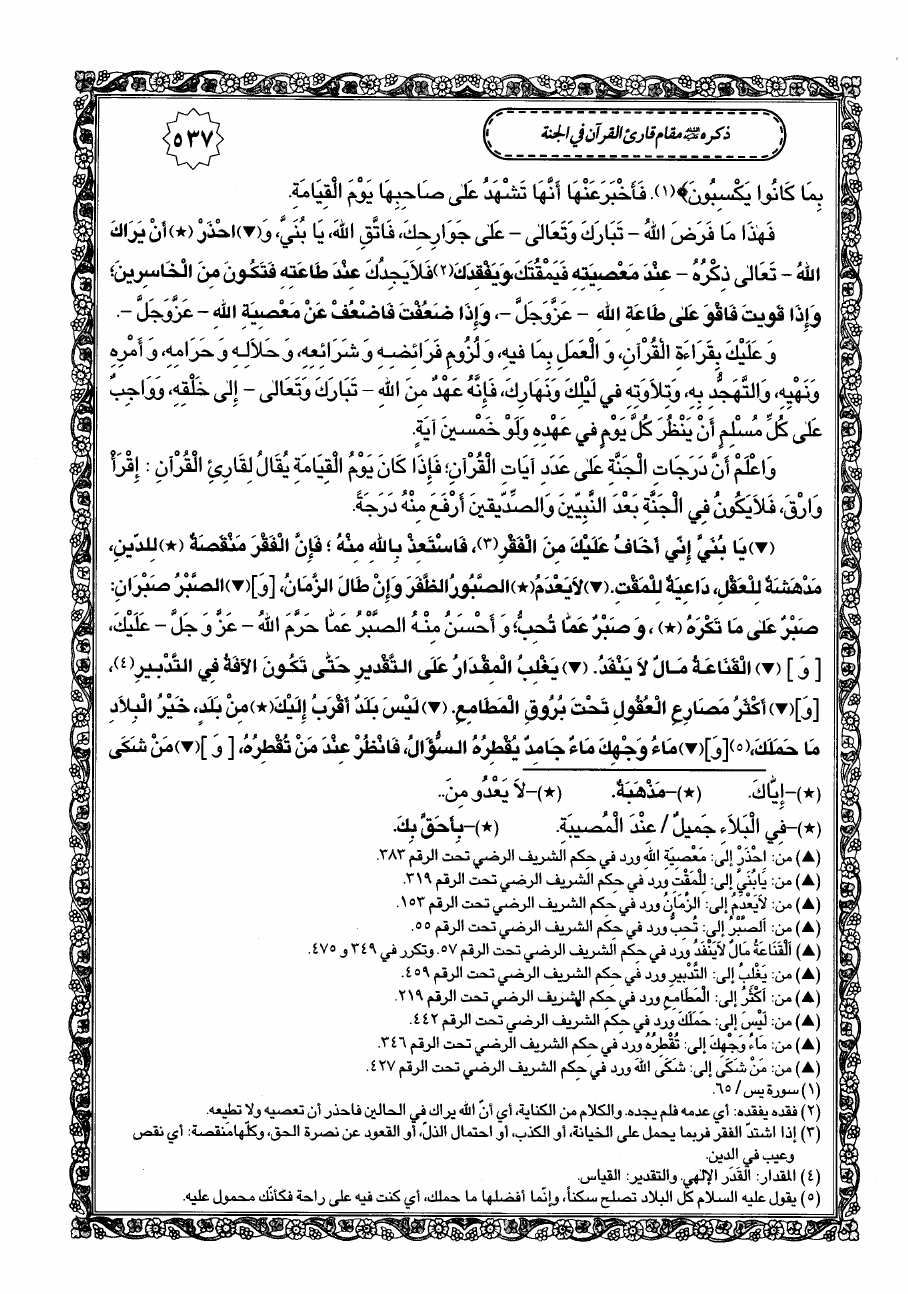 ذكره عليه السلام مقام قارئ القرآن في الجنة
٥٣٧
بِمَا كَانُوا يَكْسِبُونَ﴾(١). فَأَخْبَرَ عَنْهَا أَنَّهَا تَشْهَدُ عَلى صَاحِبِهَا يَوْمَ الْقِيَامَةِ.
فَهٰذَا مَا فَرَضَ اللهُ – تَبَارَكَ وَتَعَالى – عَلى جَوَارِحِكَ، فَاتَّقِ اللهَ، يَا بُنَيَّ، وَ(▼)احْذَرْ (★) أَنْ يَرَاكَ
اللهُ – تَعَالى ذِكْرُهُ – عِنْدَ مَعْصِيَتِهِ فَيَمْقُتَكَ، وَيَفْقِدَكَ(٢) فَلاَ يَجِدُكَ عِنْدَ طَاعَتِهِ فَتَكُونَ مِنَ الْخَاسِرِينَ؛
وَإِذَا قَوِيتَ فَاقْوَ عَلى طَاعَةِ اللهِ – عَزَّ وَجَلَّ –، وَإِذَا ضَعُفْتَ فَاضْعُفْ عَنْ مَعْصِيَةِ اللهِ – عَزَّ وَجَلَّ –.
وَ عَلَيْكَ بِقَرَاءَةِ الْقُرْآنِ، وَ الْعَمَلِ بِمَا فِيهِ، وَ لُزُومِ فَرَائِضِهِ وَ شَرَائِعِهِ، وَ حَلاَلِهِ وَ حَرَامِهِ، وَ أَمْرِهِ
وَنَهْيِهِ، وَالتَّهَجُّدِ بِهِ، وَتِلاَوَتِهِ في لَيْلِكَ وَنَهَارِكَ، فَإِنَّهُ عَهْدٌ مِنَ اللهِ – تَبَارَكَ وَتَعَالى – إِلى خَلْقِهِ، وَوَاجِبٌ
عَلى كُلِّ مُسْلِمٍ أَنْ يَنْظُرَ كُلَّ يَوْمٍ في عَهْدِهِ وَلَوْ خَمْسينَ آيَةً.
وَاعْلَمْ أَنَّ دَرَجَاتِ الْجَنَّةِ عَلى عَدَدِ آيَاتِ الْقُرْآنِ؛ فَإِذَا كَانَ يَوْمُ الْقِيَامَةِ يُقَالُ لِقَارِئِ الْقُرْآنِ : إِقْرَأْ
وَارْقَ، فَلاَ يَكُونُ فِي الْجَنَّةِ بَعْدَ النَّبِيّينَ وَالصِّدّيقينَ أَرْفَعَ مِنْهُ دَرَجَةً.
(▼) يَا بُنَيَّ إِنّي أَخَافُ عَلَيْكَ مِنَ الْفَقْرِ(٣)، فَاسْتَعِذْ بِاللهِ مِنْهُ ؛ فَإِنَّ الْفَقْرَ مَنْقَصَةٌ (★) لِلدّينِ،
مَدْهَشَةٌ لِلْعَقْلِ، دَاعِيَةٌ لِلْمَقْتِ. (▼) لاَ يَعْدَمُ (★) الصَّبُورُ الظَّفَرَ وَإِنْ طَالَ الزَّمَانُ، [وَ] (▼) الصَّبْرُ صَبْرَانِ:
صَبْرٌ عَلى مَا تَكْرَهُ (★) ، وَ صَبْرٌ عَمَّا تُحِبُّ؛ وَ أَحْسَنُ مِنْهُ الصَّبْرُ عَمَّا حَرَّمَ اللهُ – عَزَّ وَ جَلَّ – عَلَيْكَ،
[ وَ ] (▼) الْقَنَاعَةُ مَالٌ لاَ يَنْفَدُ. (▼) يَغْلِبُ الْمِقْدَارُ عَلَى التَّقْديرِ حَتّى تَكُونَ الآفَةُ فِي التَّدْبيرِ(٤)،
[وَ](▼) أَكْثَرُ مَصَارِعِ الْعُقُولِ تَحْتَ بُرُوقِ الْمَطَامِعِ. (▼) لَيْسَ بَلَدٌ أَقْرَبُ إِلَيْكَ(★) مِنْ بَلَدٍ، خَيْرُ الْبِلاَدِ
مَا حَمَلَكَ،(٥) [وَ](▼) مَاءُ وَجْهِكَ مَاءٌ جَامِدٌ يُقْطِرُهُ السُّؤَالُ، فَانْظُرْ عِنْدَ مَنْ تُقْطِرُهُ، [ وَ ](▼) مَنْ شَكَى
(★)–إِيَّاكَ. (★)–مَذْهَبَةٌ. (★)–لاَ يَعْدُو مِنَ..
(★)–فِي الْبَلاَءِ جَميلٌ / عِنْدَ الْمُصيبَةِ. (★)–بِأَحَقَّ بِكَ.
(▲) من: احْذَرْ إلى: مَعْصِيَةِ اللهِ ورد في حكم الشريف الرضي تحت الرقم ٣٨٣.
(▲) من: يَا بُنَيَّ إلى: لِلْمَقْتِ ورد في حكم الشريف الرضي تحت الرقم ٣١٩.
(▲) من: لاَ يَعْدَمُ إلى: الزَّمَانُ ورد في حكم الشريف الرضي تحت الرقم ١٥٣.
(▲) من: اَلصَّبْرُ إلى: تُحِبُّ ورد في حكم الشريف الرضي تحت الرقم ٥٥.
(▲) اَلْقَنَاعَةُ مَالٌ لاَ يَنْفَدُ ورد في حكم الشريف الرضي تحت الرقم ٥٧. وتكرر في ٣٤٩ و ٤٧٥.
(▲) من: يَغْلِبُ إلى: التَّدْبيرِ ورد في حكم الشريف الرضي تحت الرقم ٤٥٩.
(▲) من: أَكْثَرُ إلى: الْمَطَامِعِ ورد في حكم الشريف الرضي تحت الرقم ٢١٩.
(▲) من: لَيْسَ إلى: حَمَلَكَ ورد في حكم الشريف الرضي تحت الرقم ٤٤٢.
(▲) من: مَاءُ وَجْهِكَ إلى: تُقْطِرُهُ ورد في حكم الشريف الرضي تحت الرقم ٣٤٦.
(▲) من: مَنْ شَكَى إلى: شَكَى اللهَ ورد في حكم الشريف الرضي تحت الرقم ٤٢٧.
(١) سورة يس / ٦٥.
(٢) فقده يفقده: أي عدمه فلم يجده. والكلام من الكناية، أي أنّ الله يراك في الحالين فاحذر أن تعصيه ولا تطيعه.
(٣) إذا اشتدّ الفقر فربما يحمل على الخيانة، أو الكذب، أو احتمال الذلّ، أو القعود عن نصرة الحق، وكلّها منقصة: أي نقص
وعيب في الدين.
(٤) المقدار: القَدَر الإلهي. والتقدير: القياس.
(٥) يقول عليه السلام كلّ البلاد تصلح سكناً، وإنّما أفضلها ما حملك، أي كنت فيه على راحة فكأنّك محمول عليه.